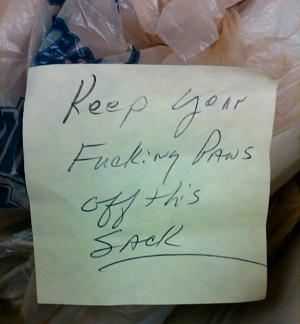 Keep your
Fucking Paws
off this
SACK